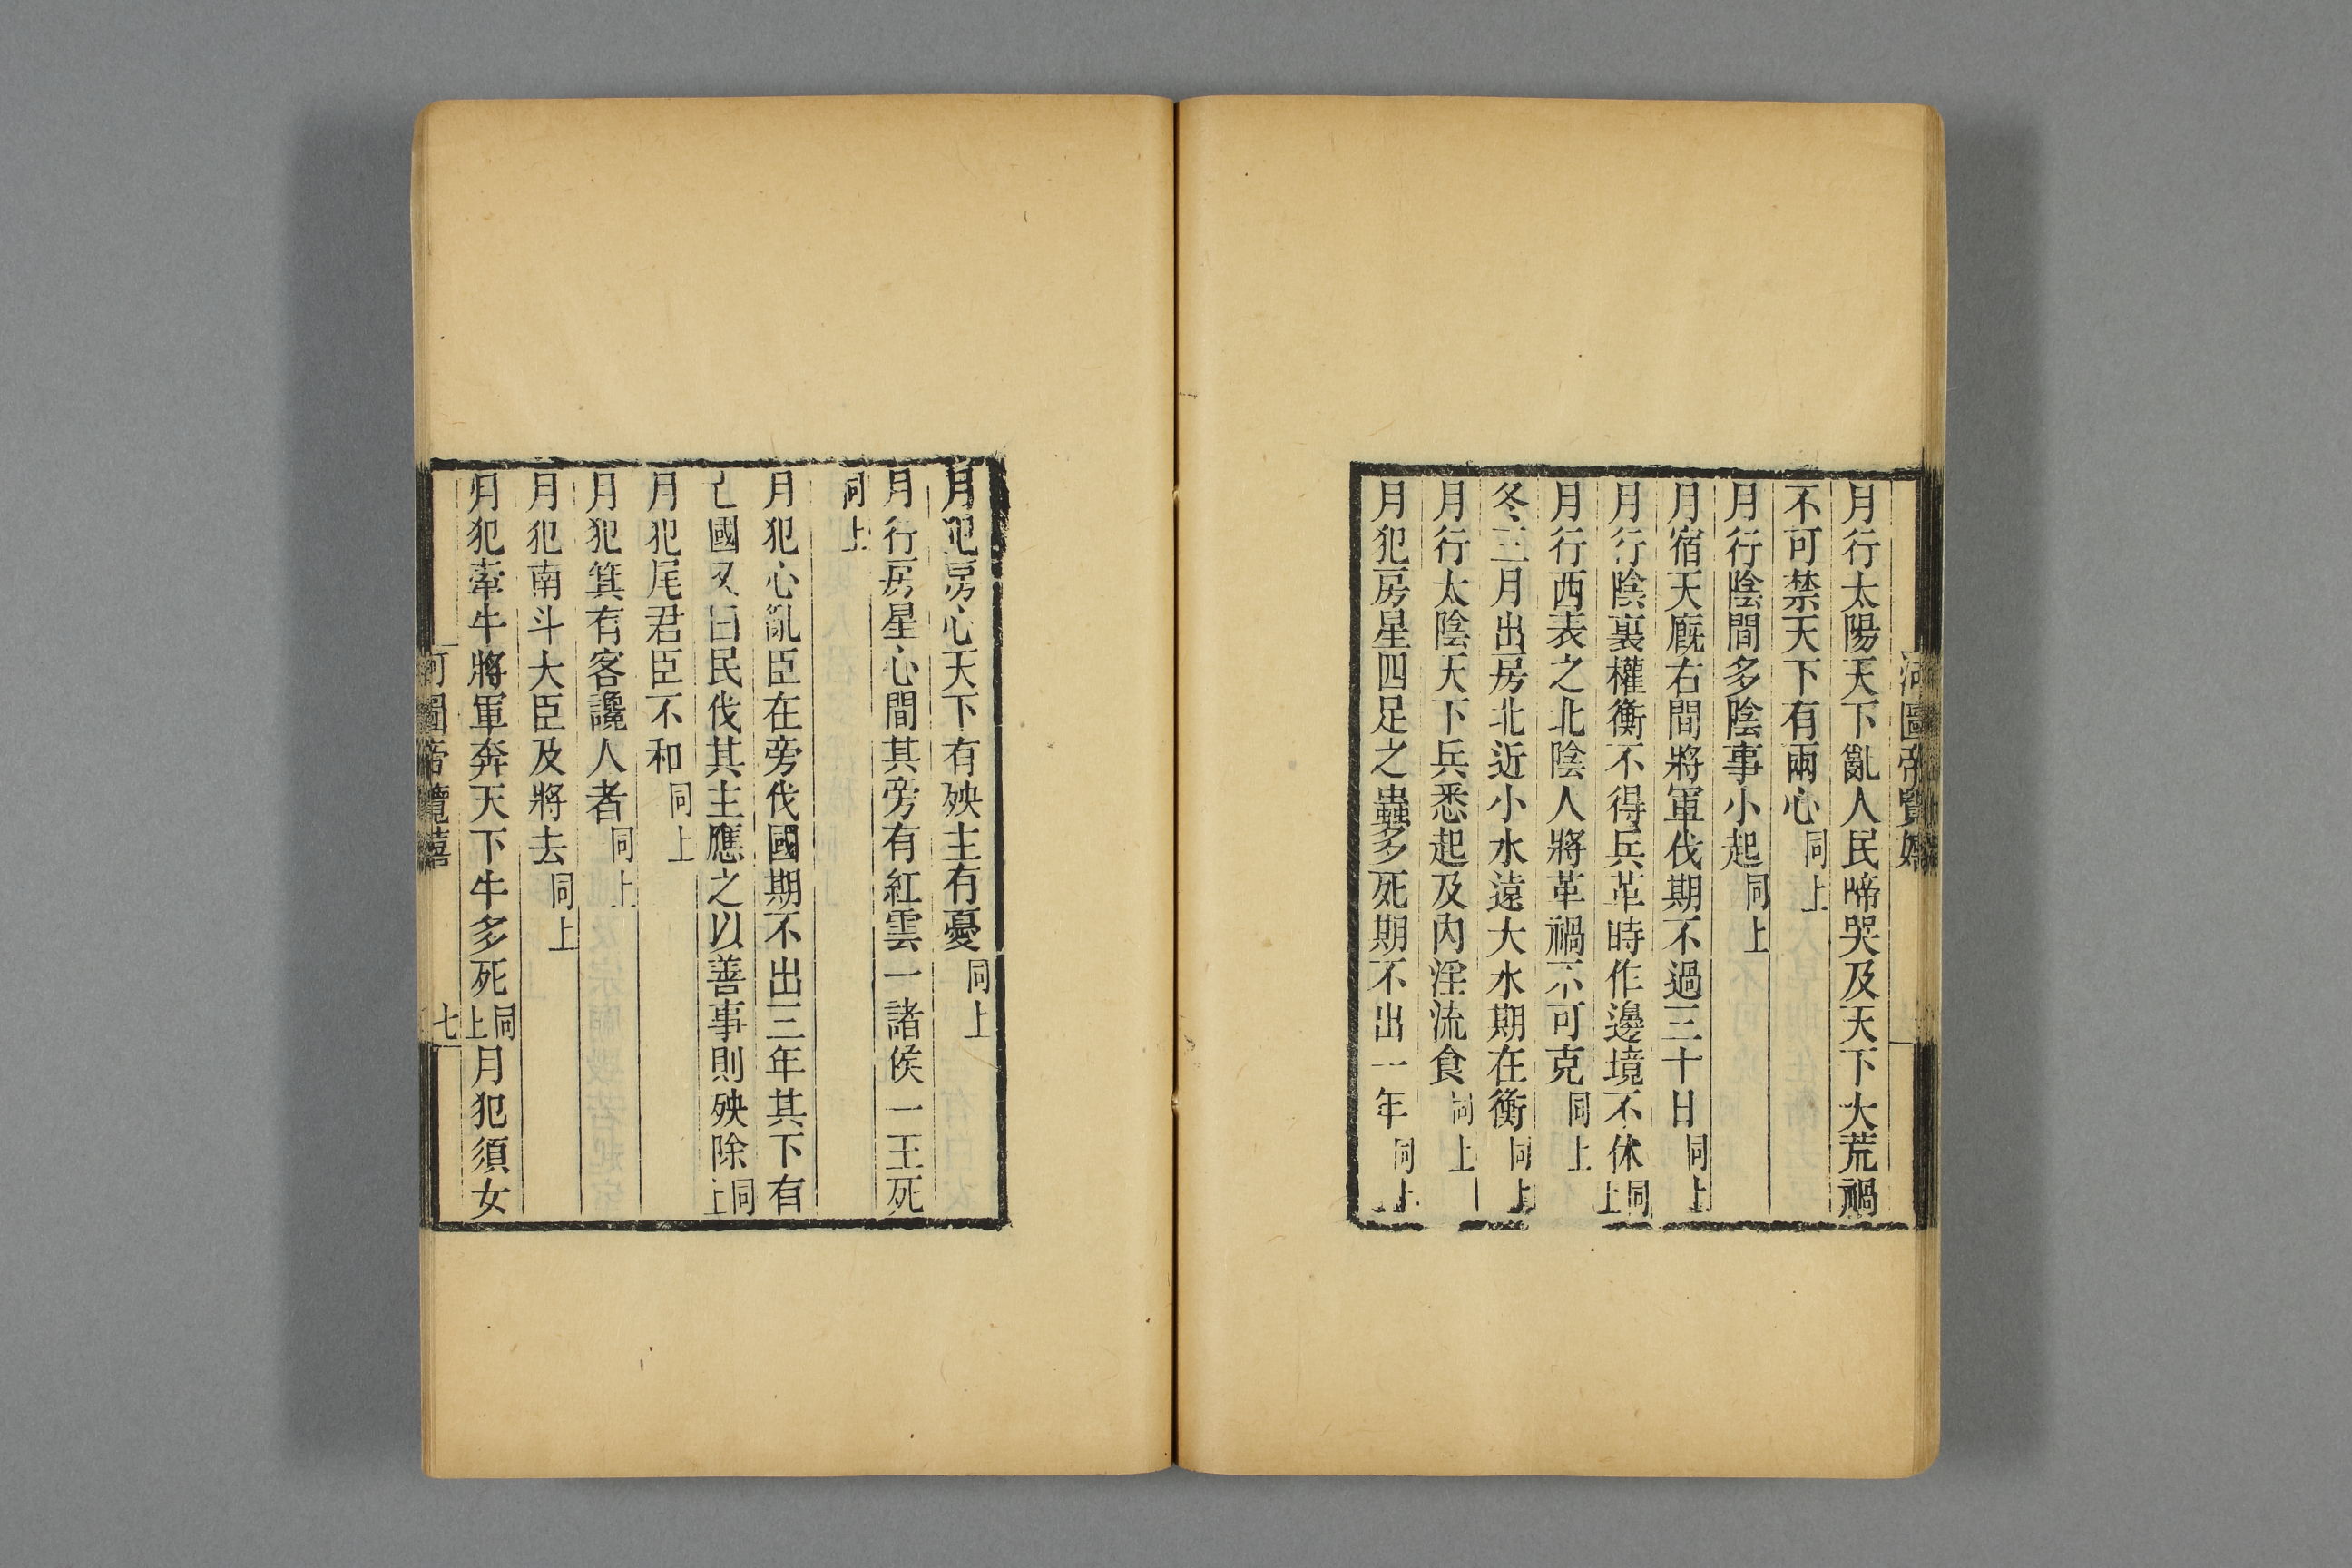 河圖帝覽嬉
月行太陽天下亂人民啼哭及天下大荒禍
不可禁天下有兩心同上
月行陰間多陰事小起同上
月宿天廐右間將軍伐期不過三十日同上
月行陰裏權衡不得兵革時作邊境不休同上
月行西表之北陰人將革禍不可克同上
冬三月出房北近小水遠大水期在衡同上
月行太陰天下兵悉起及內淫流食同上
月犯房星四足之蟲多死期不出一年同上
月犯房心天下有殃主有憂同上
月行房星心間其旁有紅雲一諸侯一王死
同上
月犯心亂臣在旁伐國期不出三年其下有
亡國又曰民伐其主應之以善事則殃除同上
月犯尾君臣不和同上
月犯箕有客讒人者同上
月犯南斗大臣及將去同上
月犯牽牛將軍奔天下牛多死同上月犯須女
河圖帝覽嬉
七